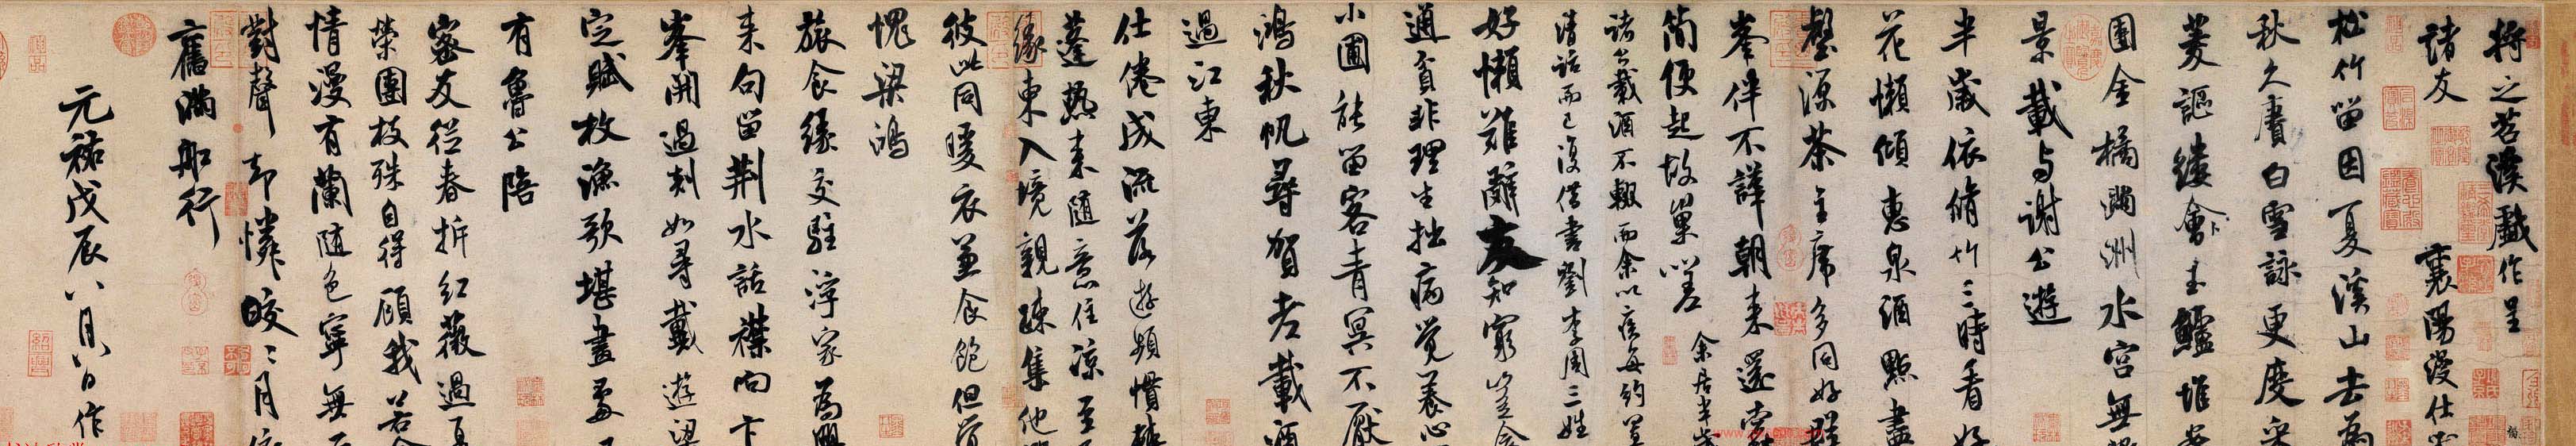 將之苕溪戲作呈
諸友　襄陽漫仕黻
松竹留因夏溪山去為
秋久賡白雪詠更度采
菱謳縷會玉鱸堆案
團金橘滿洲水宮無
景載与謝公遊
半歲依脩竹三時看好
花懶傾惠泉酒點盡
壑源茶主席多同好群
峯伴不譁朝来還蠹
簡便起故巢嗟
余居半歲
諸公載酒不輟而余以疾每約置
清話而已復借書劉李周三姓
好懶難辭友知窮豈念
通貧非理生拙病覺養心
小圃能留客青冥不厭
鴻秋帆尋賀老載酒
過江東
仕倦成流落遊頻慣轉
蓬熱来随意住凉至
緣東入境親疎集他
彼此同暖衣兼食飽但覺
愧梁鴻
旅食緣交駐浮家為興
来句留荆水話襟向卞
峯開過剡如尋戴遊梁
定賦枚漁歌堪畫處又
有魯公陪
密友從春拆紅薇過夏
榮團枝殊自得顧我若含
情漫有蘭随色寧無石
對聲却憐皎〻月依
舊滿船行
元祐戊辰八月八日作